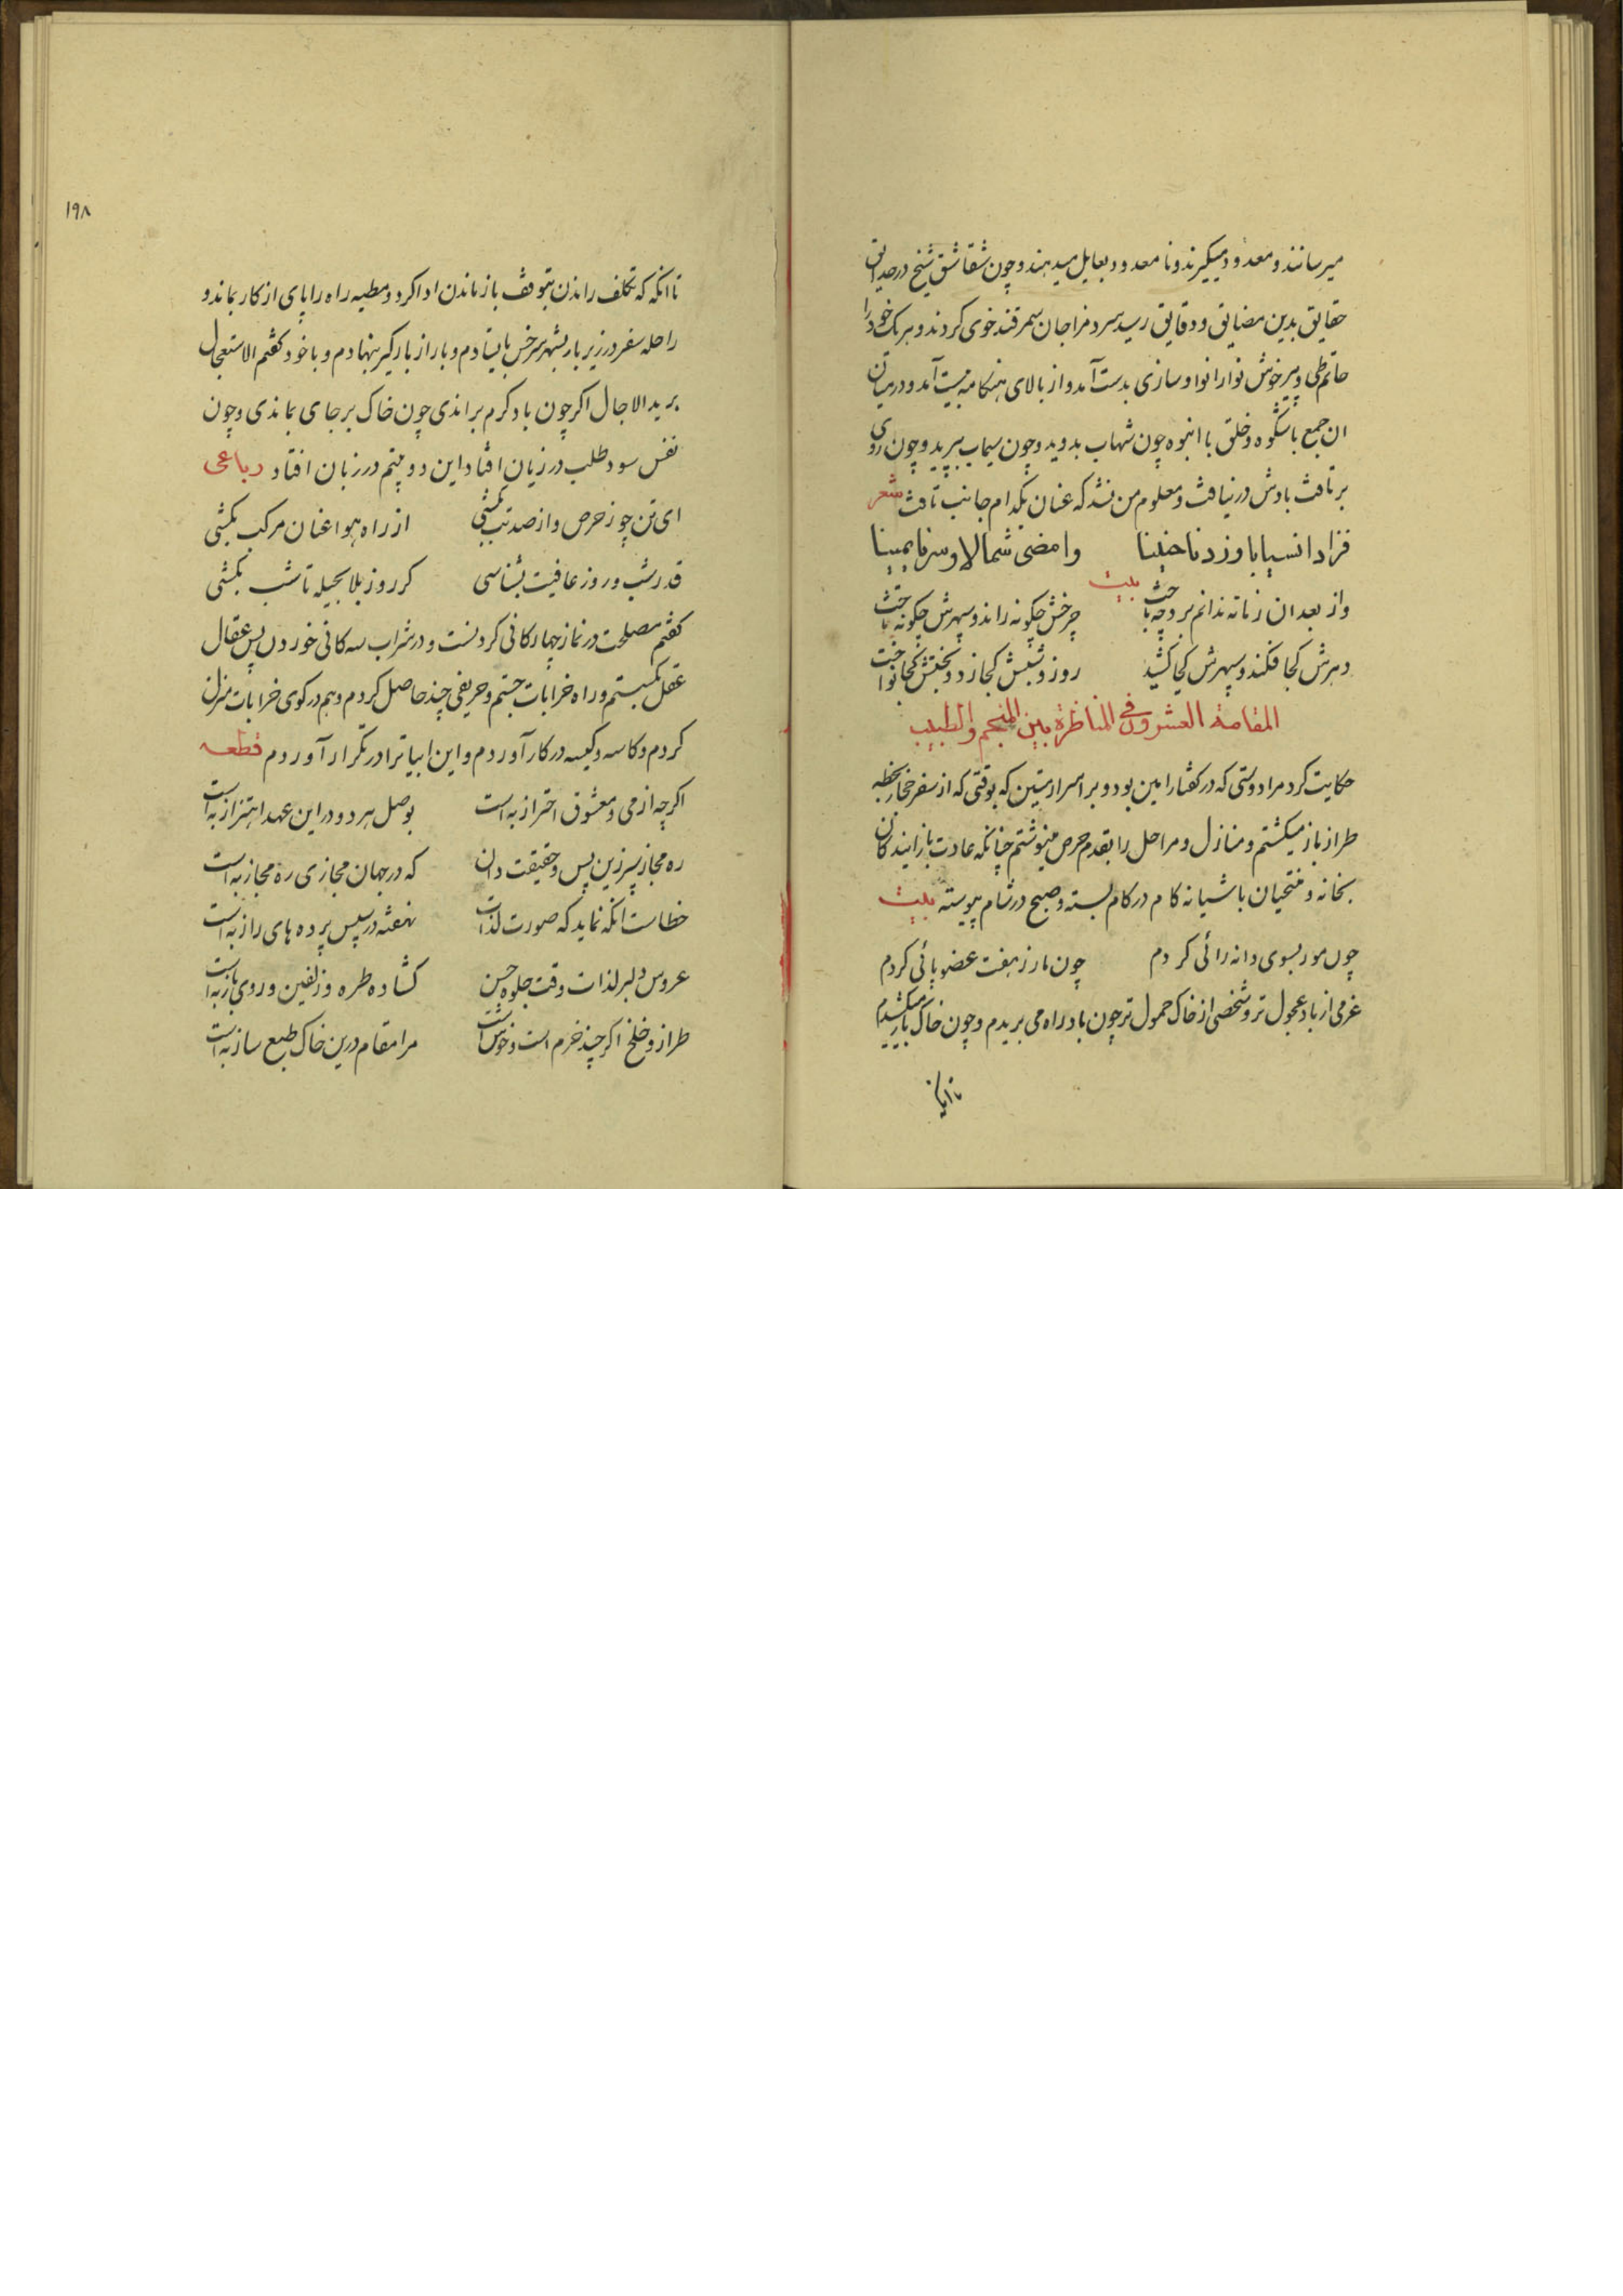 میرسانند و معدود میگیرند و نا معدود بعایل میدهند و چون شقاشق شیخ در حدایق
حقایق بدین مضایق و دقایق رسید سرد مزاجان سمرقند خوی کردند و هر یک خود را
حاتم طی و پیر خوش نوا را نوا و سازی بدست آمد و از بالای هنگامه بپست آمد و در میان
ان جمع باشکوه و خلق با انبوه چون شهاب بدوید و چون سیماب بپرید و چون روی
برتافت بادش در نیافت و معلوم من نشد که عنان بکدام جانب تافت شعر
فزادا نسیابا وزدنا حنینا وامضی شمالا وسرنا یمینا
بیت
واز بعد ان زمانه ندانم برو چه باخت چرخش چگونه راند و سپهرش چگونه باخت
دهرش کجا فکند و سپهرش کجا کشید روز و شبش کجا زد و بختش کجا نواخت
المقامة العشرون فی المناظرة بین المنجم والطبیب
حکایت کرد مرا دوستی که در گفتار امین بود و بر اسرار متین که بوقتی که از سفر حجاز بخطه
طراز باز میگشتم و منازل و مراحل را بقدم حرص مینوشتم چنانکه عادت باز ایندگان
بخانه و منتحیان باشیانه کام در کام بسته و صبح در شام پیوسته بیت
چون مور بسوی دانه رائی کردم چون مار ز هفت عضو پائی کردم
عزمی از باد عجول تر و شخصی از خاک حمول تر چون باد راه می بریدم و چون خاک بار میکشیدم
تا انکه
۱۹۸
تا انکه که تکلف راندن بتوقف باز ماندن ادا کرد و مطیه راه را پای از کار بماند و
راحله سفر در زیر بار بشهر سرخس بایستادم و بار از بارگیر بنهادم و با خود گفتم الاستعجال
برید الاجال اگر چون باد گرم براندی چون خاک بر جای بماندی و چون
نفس سود طلب در زیان افتاد این دو بیتم در زبان افتاد رباعی
ای تن چو ز حرص و از صد تب بکشی از راه هوا عنان مرکب بکشی
قدر شب و روز عافیت بشناسی گر روز بلا بحیله تا شب بکشی
گفتم مصلحت در نماز چهارکانی کردنست و در شراب سه کانی خوردن پس عقال
عقل بگسستم و راه خرابات جستم و حریفی چند حاصل کردم و هم در کوی خرابات منزل
کردم و کاسه و کیسه در کار آوردم و این ابیاترا در تکرار آوردم قطعه
اگر چه از می و معشوق احتراز به است بوصل هر دو در این عهد اهتزاز به است
ره مجاز سپر زین پس و حقیقت دان که در جهان مجازی ره مجاز به است
خطاست انکه نماید که صورت لذات نهفته در سپس پرده های راز به است
عروس دلبر لذات وقت جلوه حسن گشاده طره و زلفین و روی باز به است
طراز و خلخ اگر چند خرم است و خوش است مرا مقام درین خاک طبع ساز به است